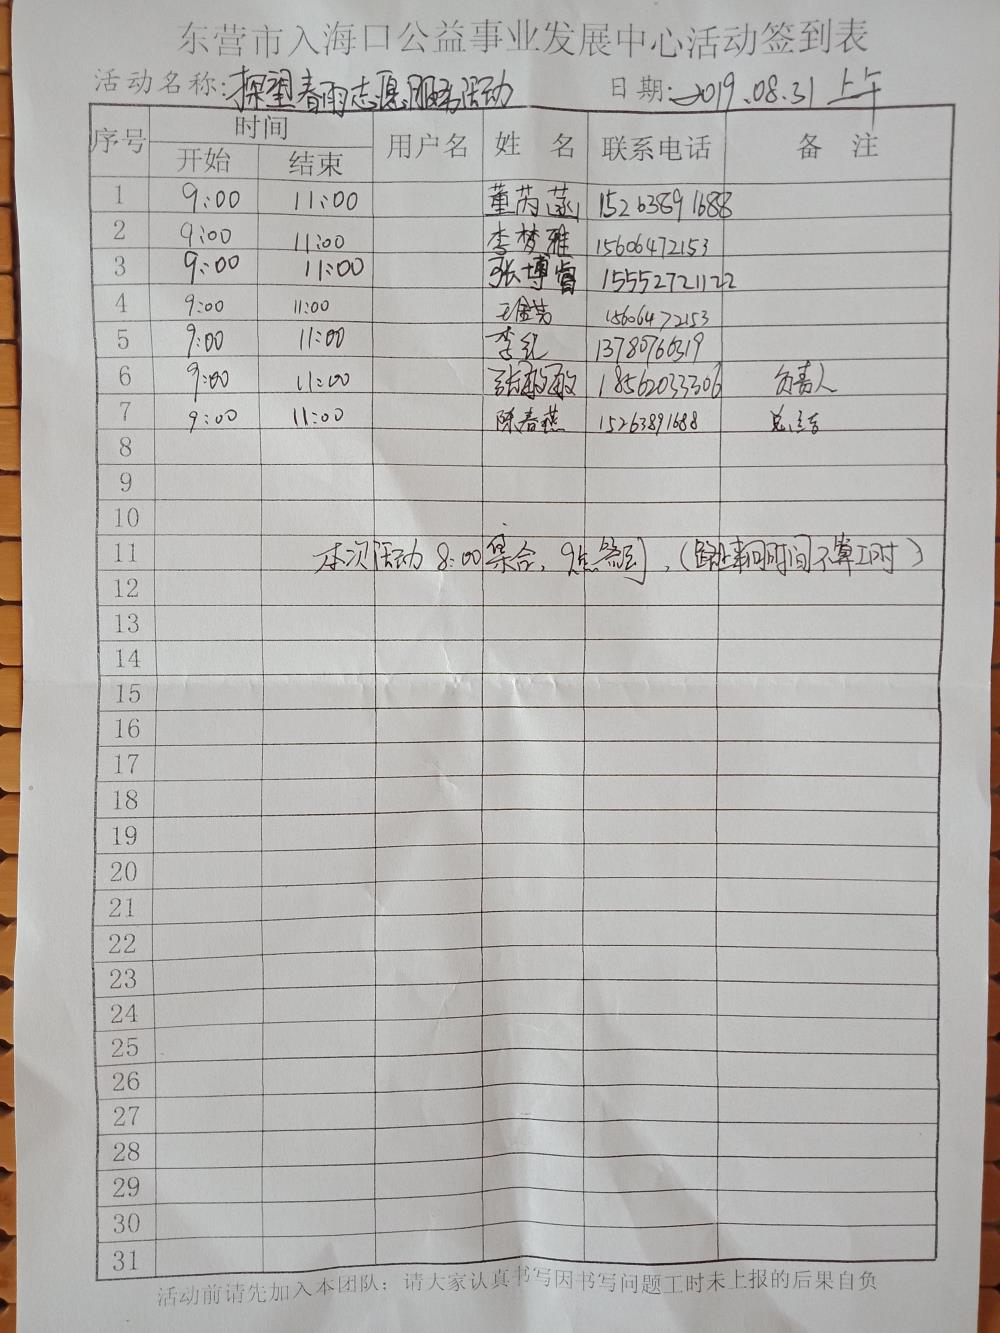 东营市入海口公益事业发展中心活动签到表
活动名称:探望春雨志愿服务活动 日期:2019.08.31 上午
序号 时间 用户名 姓名 联系电话 备注
开始 结束
1 9:00 11:00 董芮菡 15263891688
2 9:00 11:00 李梦雅 15606472153
3 9:00 11:00 张博睿 15552721122
4 9:00 11:00 15606472153
5 9:00 11:00 李纪 13780760319
6 9:00 11:00 张敏敏 18562033306 负责人
7 9:00 11:00 陈春燕 15263891688 总结
8
9
10
11 本次活动8:00集合,9点签到,(路上车间时间不算工时)
12
13
14
15
16
17
18
19
20
21
22
23
24
25
26
27
28
29
30
31
活动前请先加入本团队;请大家认真书写因书写问题工时未上报的后果自负